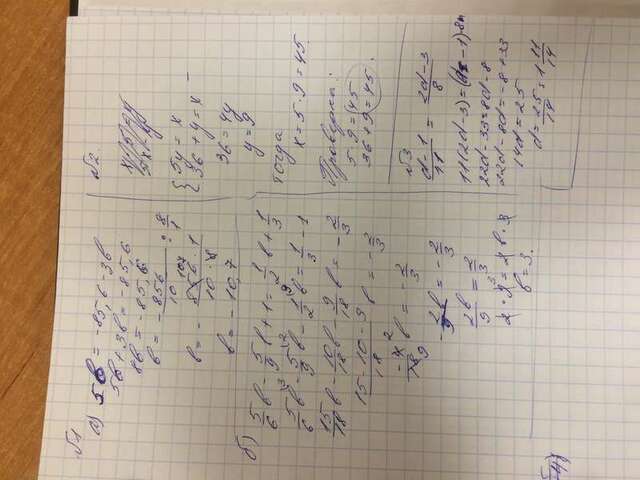 №1
а) 5b = -85,6 - 3b
5b + 3b = -85,6
8b = -85,6
b = - 856/10 : 8/1
b = - 856 · 1 / 10 · 8
107
b = -10,7
б) 5/6 b - 5/9 b + 1 = 1/2 b + 1/3
5/6 b - 5/9 b - 1/2 b = 1/3 - 1
15/18 b - 10/18 b - 9/18 b = - 2/3
15 - 10 - 9 / 18 b = - 2/3
-4/18 b = - 2/3
- 2/9 b = - 2/3
2b/9 = 2/3
2 · 9 = 2b · 3
b = 3.
№2
{ 5y = x
36 + y = x
36 = 4y
y = 9
тогда
x = 5 · 9 = 45.
Проверка:
5 · 9 = 45
36 + 9 = 45.
№3
d - 1 / 11 = 2d - 3 / 8
11(2d - 3) = (d - 1) · 8
22d - 33 = 8d - 8
22d - 8d = -8 + 33
14d = 25
d = 25/14 = 1 11/14